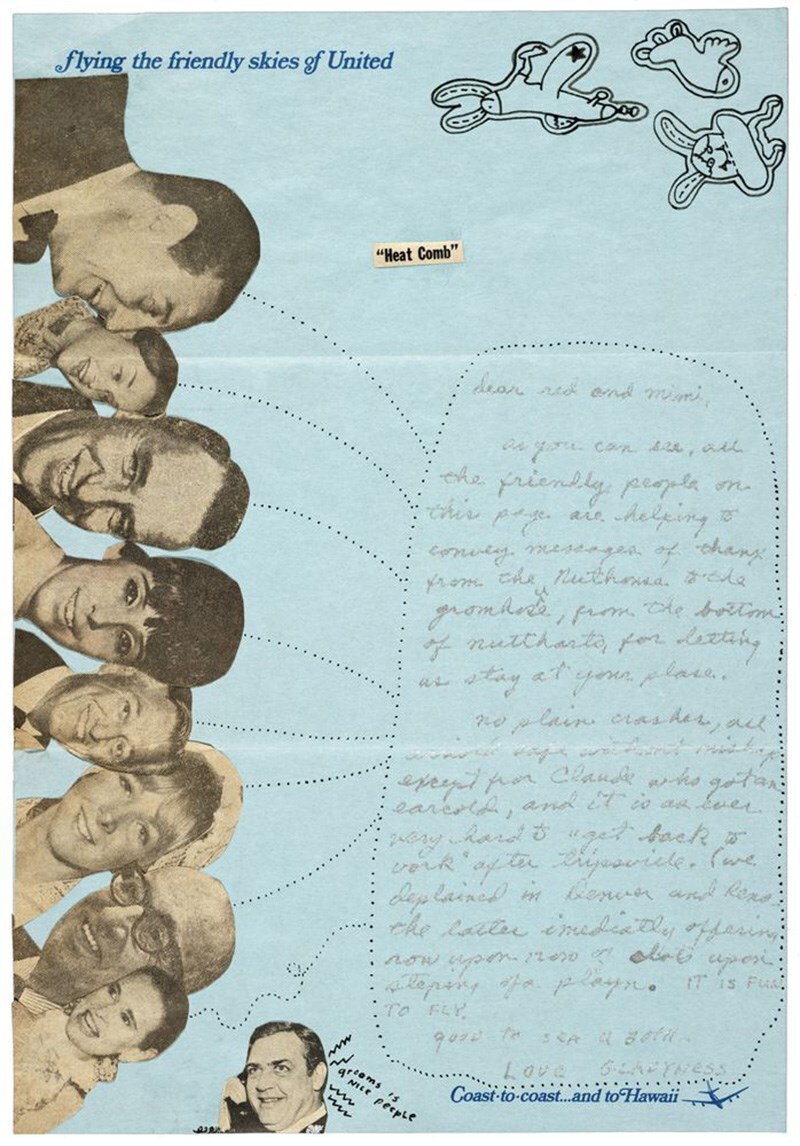 flying the friendly skies of United
"Heat Comb"
dear red and mimi,
as you can see, all
the friendly people on
this page are helping to
convey messages of thanx
from the Nuthouse to the
gromhose, from the bottom
of nuttharts, for letting
us stay at your plase.
no plain crashes, all
safe without mishap
except for Claude who got an
earcold, and it is as ever
very hard to "get back to
work" after tripsville. (we
deplained in Denver and Reno
the latter imediatly offering
row upon row of slots upon
steping of a playn. IT IS FUN
TO FLY.
good to see u both.
LOVE GLADYNESS
grooms is
nice people
Coast-to-coast...and to Hawaii